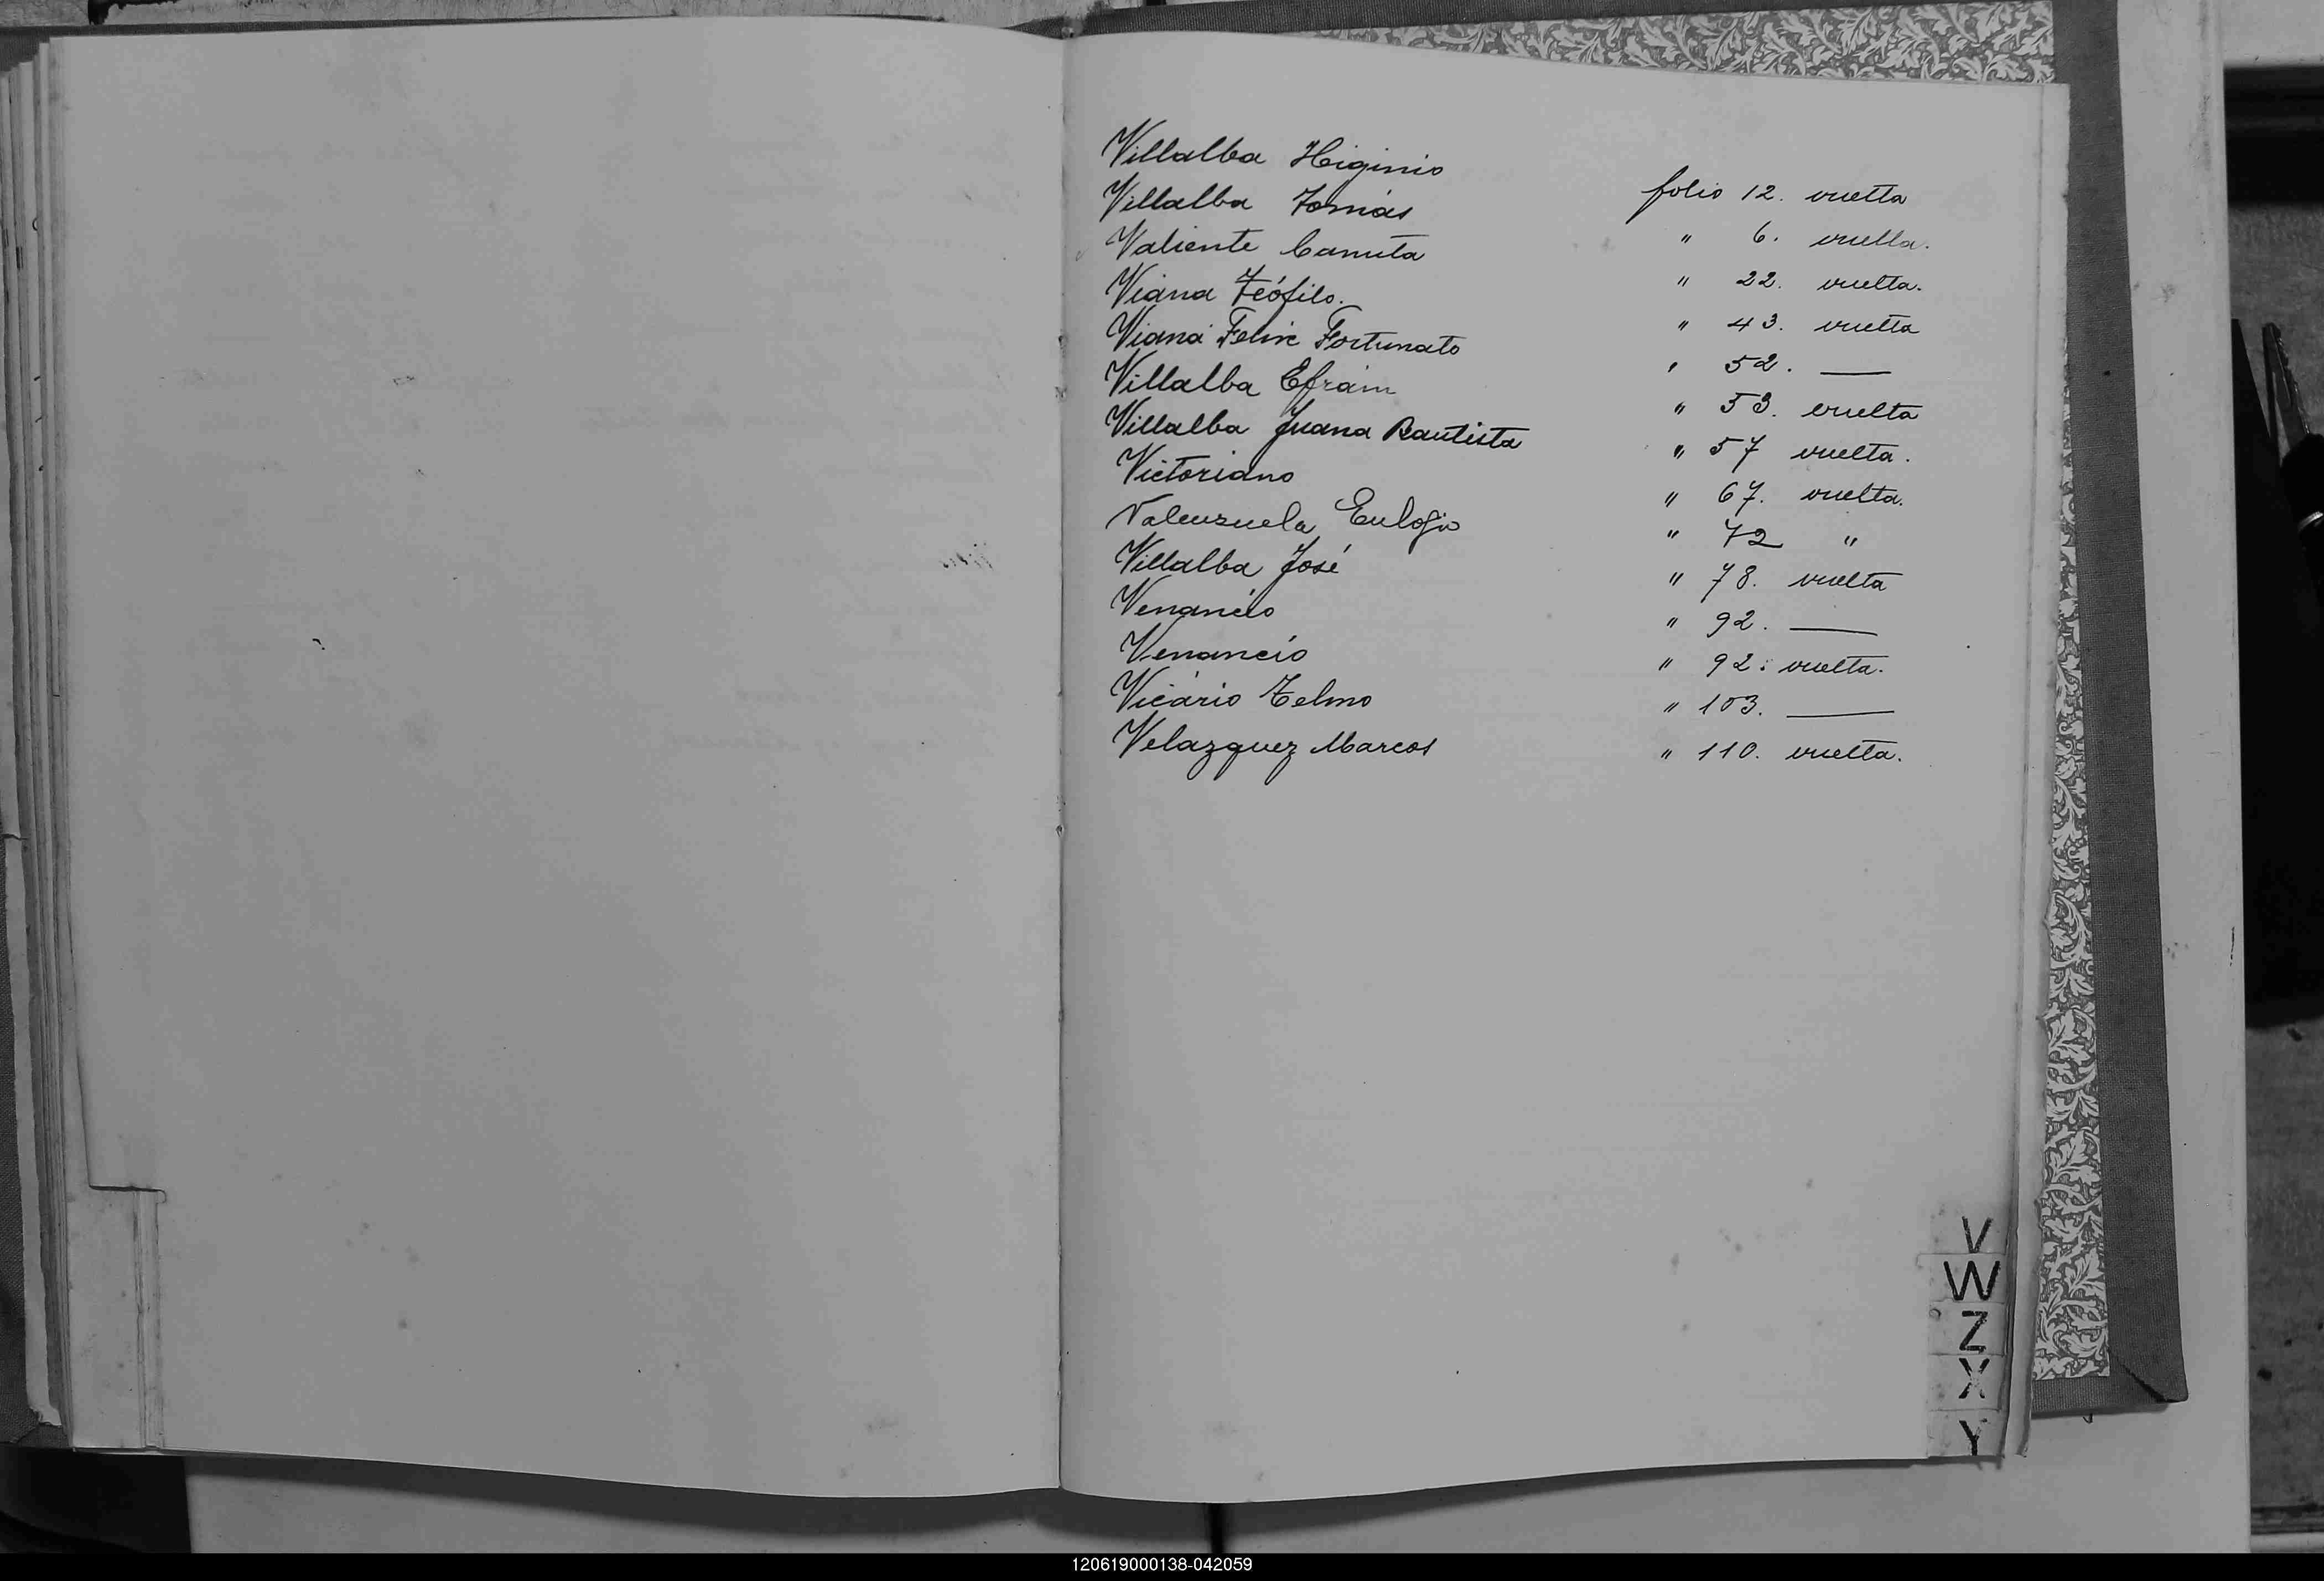 Villalba Higinio folio 12. vuelta
Villalba Tomás " 6. vuelta.
Valiente Canuta " 22. vuelta.
Viana Teófilo. " 43. vuelta
Viana Felix Fortunato " 52. —
Villalba Efraím " 53. vuelta
Villalba Juana Bautista " 57 vuelta.
Victoriano " 67. vuelta.
Valenzuela Eulogio " 72 "
Villalba José " 78. vuelta
Venancio " 92. —
Venancio " 92. vuelta.
Vicario Telmo " 103. —
Velazquez Marcos " 110. vuelta.
V
W
Z
X
Y
120619000138-042059